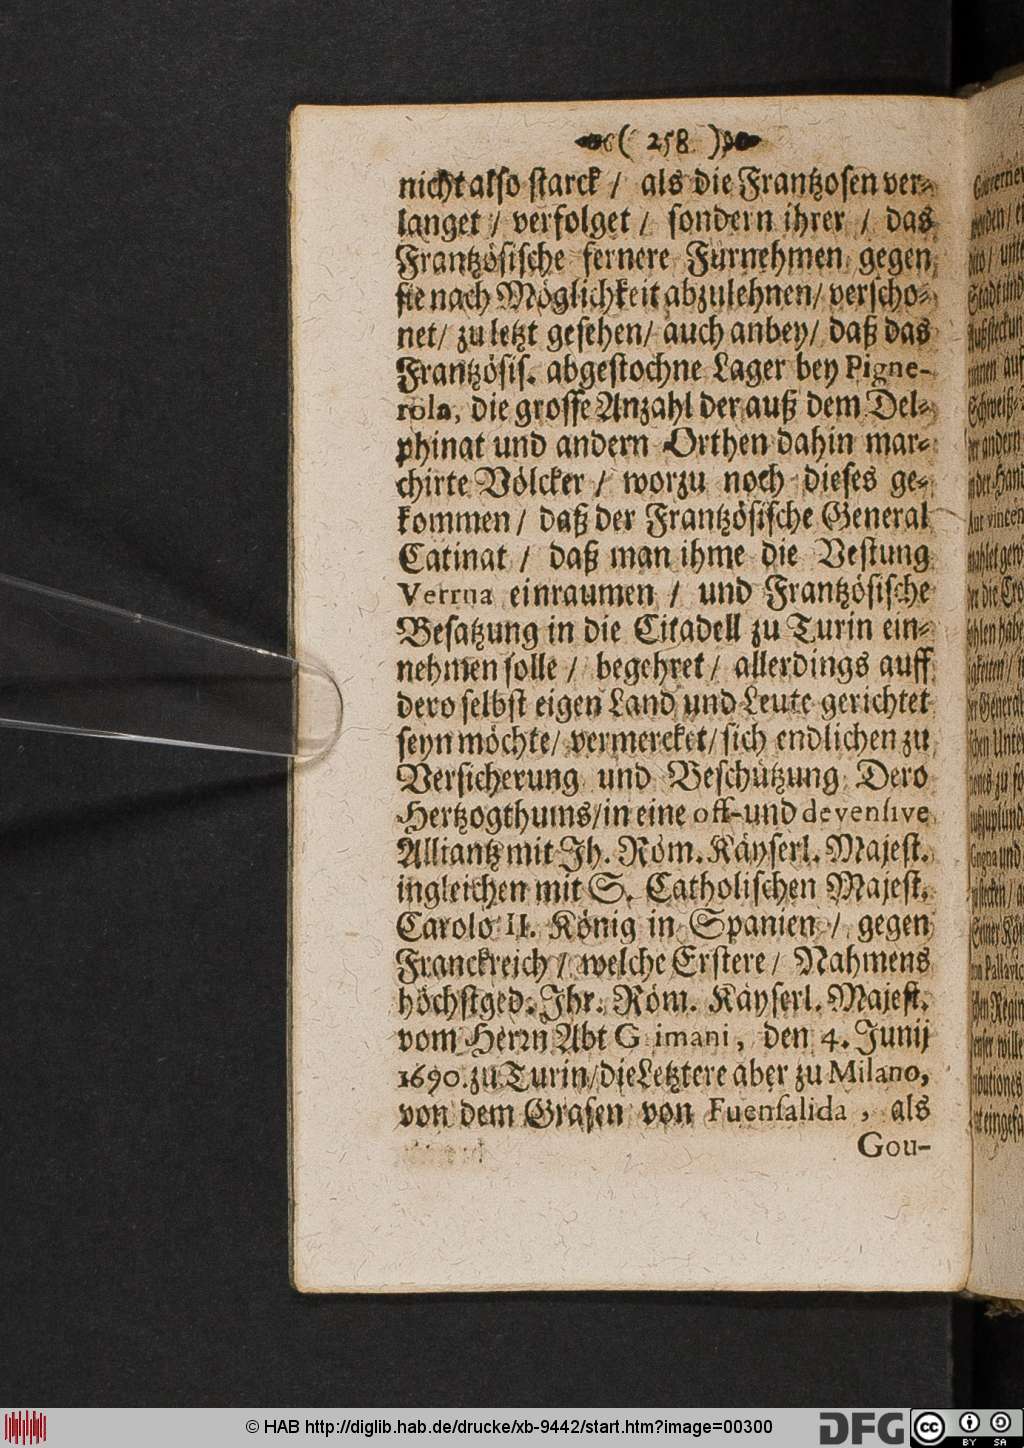 ( 258 )
nicht also starck / als die Frantzosen ver-
langet / verfolget / sondern ihrer / das
Frantzösische fernere Fürnehmen gegen
sie nach Möglichkeit abzulehnen / verscho-
net / zu letzt gesehen / auch anbey / daß das
Frantzösis. abgestochne Lager bey Pigne-
rola, die grosse Anzahl der auß dem Del-
phinat und andern Orthen dahin mar-
chirte Völcker / worzu noch dieses ge-
kommen / daß der Frantzösische General
Catinat / daß man ihme die Vestung
Verrua einraumen / und Frantzösische
Besatzung in die Citadell zu Turin ein-
nehmen solle / begehret / allerdings auff
dero selbst eigen Land und Leute gerichtet
seyn möchte / vermercket / sich endlichen zu
Versicherung und Beschützung Dero
Hertzogthums / in eine off- und devensive
Alliantz mit Ih. Röm. Käyserl. Majest.
ingleichen mit S. Catholischen Majest.
Carolo II. König in Spanien / gegen
Franckreich / welche Erstere / Nahmens
höchstged. Ihr. Röm. Käyserl. Majest.
vom Herrn Abt G imani, den 4. Junij
1690. zu Turin / die Letztere aber zu Milano,
von dem Grafen von Fuensalida, als
Gou-
© HAB http://diglib.hab.de/drucke/xb-9442/start.htm?image=00300
DFG
cc BY SA